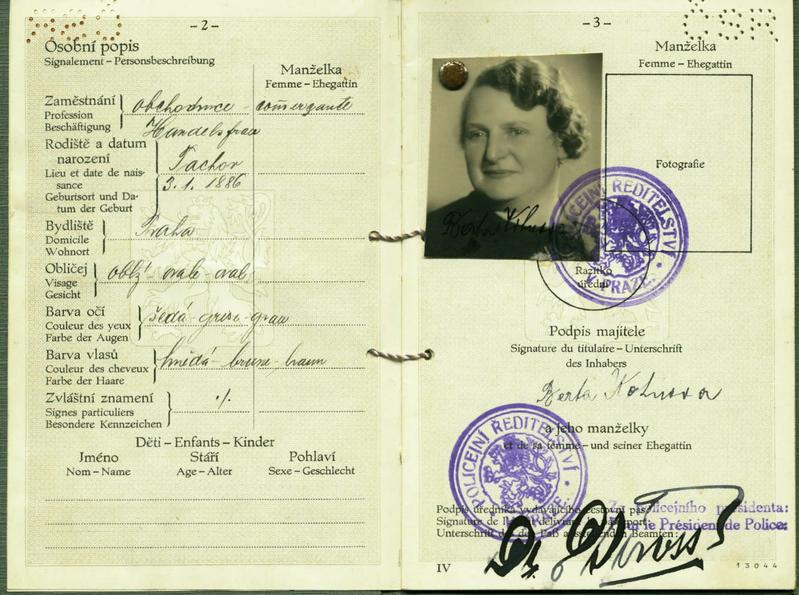 - 2 -
Osobní popis
Signalement – Personsbeschreibung
Manželka
Femme – Ehegattin
Zaměstnání
Profession
Beschäftigung
obchodnice - commerçante
Handelsfrau
Rodiště a datum
narození
Lieu et date de nais-
sance
Geburtsort und Da-
tum der Geburt
Tachov
3.1. 1886
Bydliště
Domicile
Wohnort
Praha
Obličej
Visage
Gesicht
oblý - ovale - oval
Barva očí
Couleur des yeux
Farbe der Augen
šedá - grise - grau
Barva vlasů
Couleur des cheveux
Farbe der Haare
hnědá - brune - braun
Zvláštní znamení
Signes particuliers
Besondere Kennzeichen
·/.
Děti – Enfants – Kinder
Jméno
Nom – Name
Stáří
Age – Alter
Pohlaví
Sexe – Geschlecht
- 3 -
ČSR
Manželka
Femme – Ehegattin
Fotografie
POLICEJNÍ ŘEDITELSTVÍ
V PRAZE
Razítko
úřední
Podpis majitele
Signature du titulaire – Unterschrift
des Inhabers
Berta
a jeho manželky
et de sa femme – und seiner Ehegattin
POLICEJNÍ ŘEDITELSTVÍ
V PRAZE
Za policejního presidenta:
Podpis úředníka vydávajícího cestovní pas
Pour le Président de Police:
Signature de
Unterschrift des den Paß ausstellenden Beamten:
Dr.
IV
13044